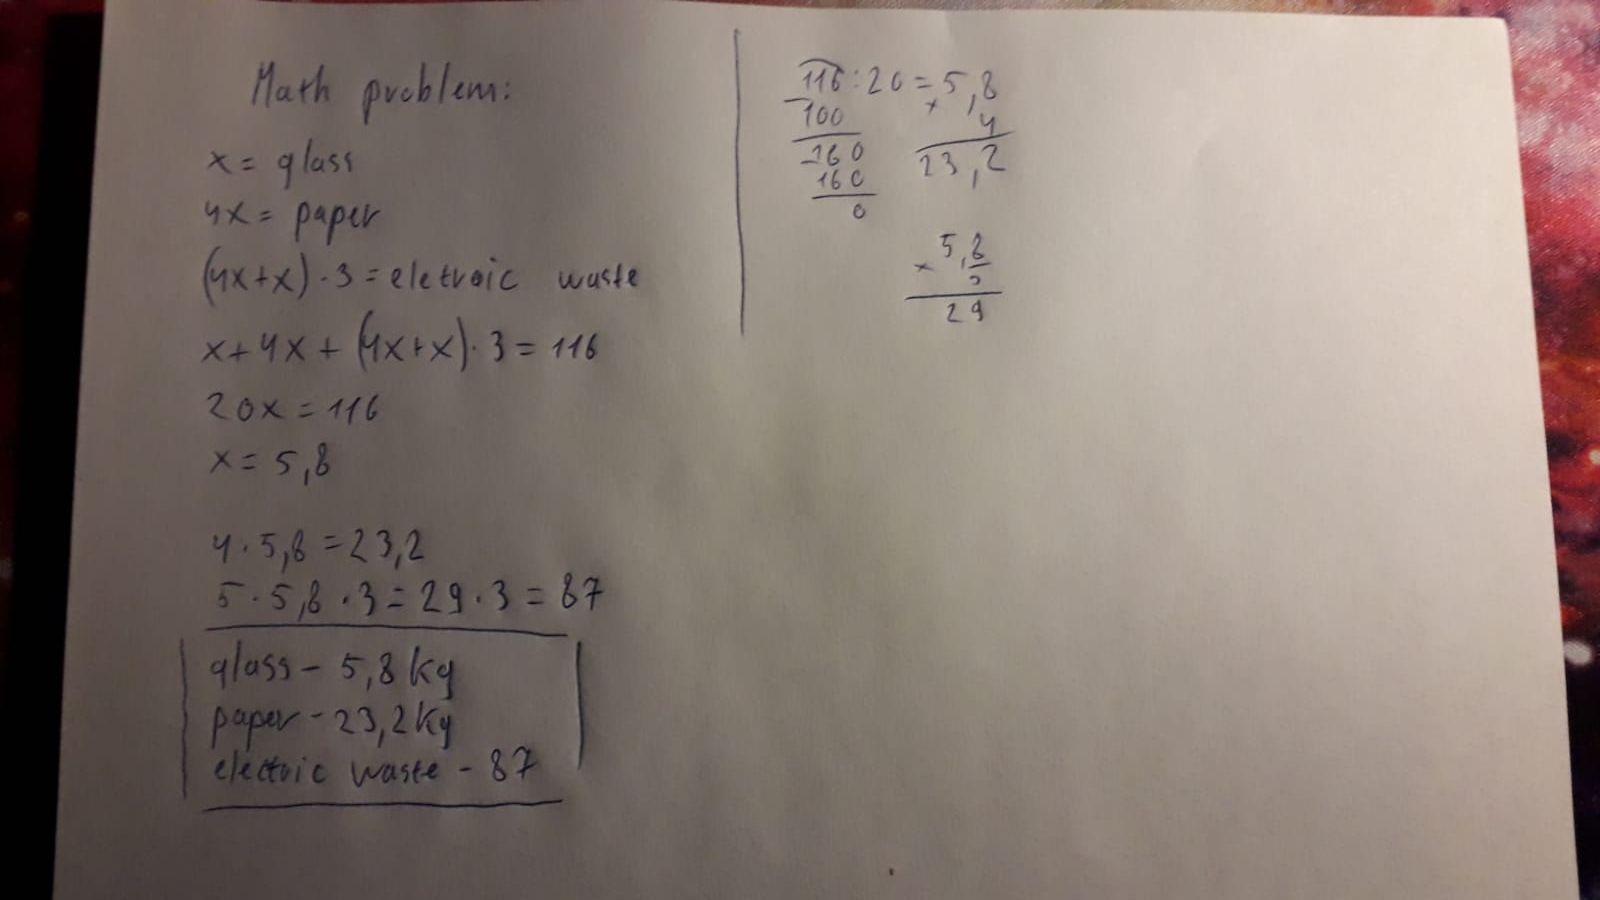 Math problem:
x = glass
4x = paper
(4x+x) · 3 = eletroic waste
x + 4x + (4x+x) · 3 = 116
20x = 116
x = 5,8
4 · 5,8 = 23,2
5 · 5,8 · 3 = 29 · 3 = 87
glass - 5,8 kg
paper - 23,2 kg
electric waste - 87
116 : 20 = 5,8
- 100
-160
160
0
× 4
23,2
5,8
× 5
29